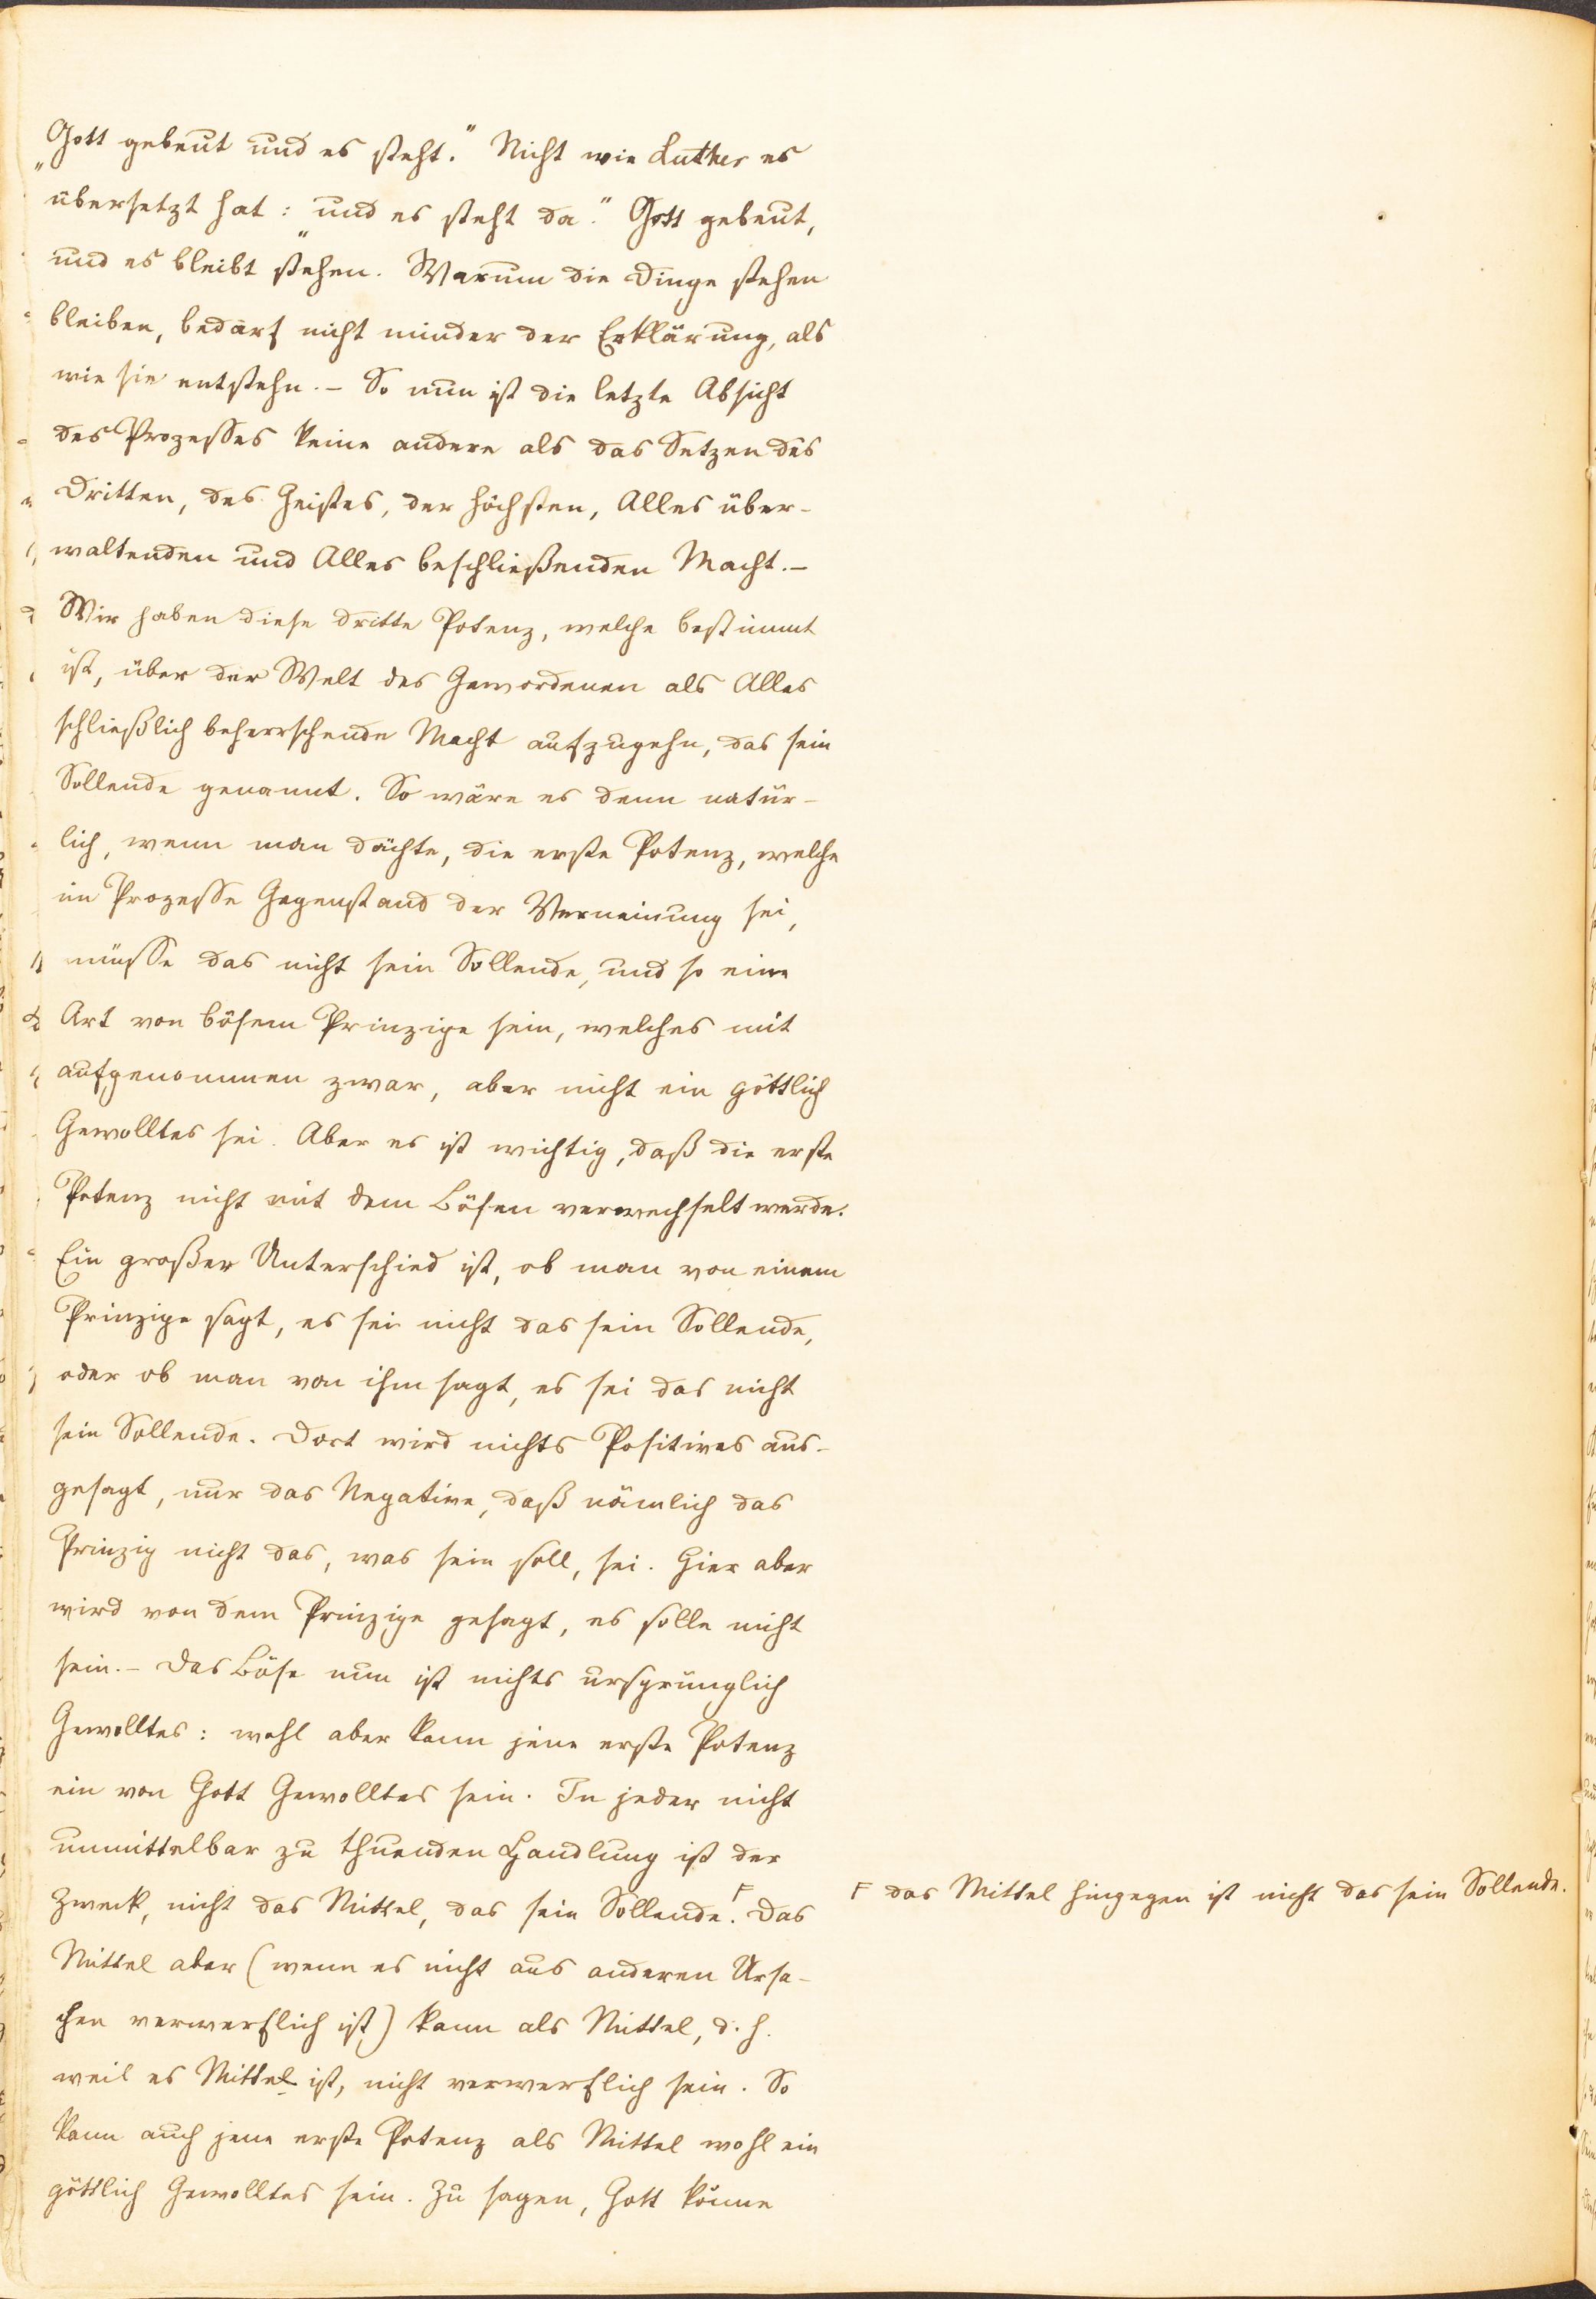 „Gott gebeut und es steht.“ Nicht wie Luther es
übersetzt hat: „und es steht da.“ Gott gebeut,
und es bleibt stehen. Warum die Dinge stehen
bleiben, bedarf nicht minder der Erklärung, als
wie sie entstehn. – So nun ist die letzte Absicht
des Prozesses keine andere als das Setzen des
Dritten, des Geistes, der höchsten, Alles über-
waltenden und Alles beschließenden Macht. –
Wir haben diese dritte Potenz, welche bestimmt
ist, über der Welt des Gewordenen als Alles
schließlich beherrschende Macht aufzugehn, das sein
Sollende genannt. So wäre es denn natür-
lich, wenn man dächte, die erste Potenz, welche
im Prozesse Gegenstand der Verneinung sei,
müsse das nicht sein Sollende, und so eine
Art von bösem Prinzipe sein, welches mit
aufgenommen zwar, aber nicht ein göttlich
Gewolltes sei. Aber es ist wichtig, daß die erste
Potenz nicht mit dem Bösen verwechselt werde.
Ein großer Unterschied ist, ob man von einem
Prinzipe sagt, es sei nicht das sein Sollende,
oder ob man von ihm sagt, es sei das nicht
sein Sollende. Dort wird nichts Positives aus-
gesagt, nur das Negative, daß nämlich das
Prinzip nicht das, was sein soll, sei. Hier aber
wird von dem Prinzipe gesagt, es solle nicht
sein. – Das Böse nun ist nichts ursprünglich
Gewolltes: wohl aber kann jene erste Potenz
ein von Gott Gewolltes sein. In jeder nicht
unmittelbar zu thuenden Handlung ist der
Zweck, nicht das Mittel, das sein Sollende.F Das
F das Mittel hingegen ist nicht das sein Sollende.
Mittel aber (wenn es nicht aus anderen Ursa-
chen verwerflich ist) kann als Mittel, d. h.
weil es Mittel ist, nicht verwerflich sein. So
kann auch jene erste Potenz als Mittel wohl ein
göttlich Gewolltes sein. Zu sagen, Gott könne